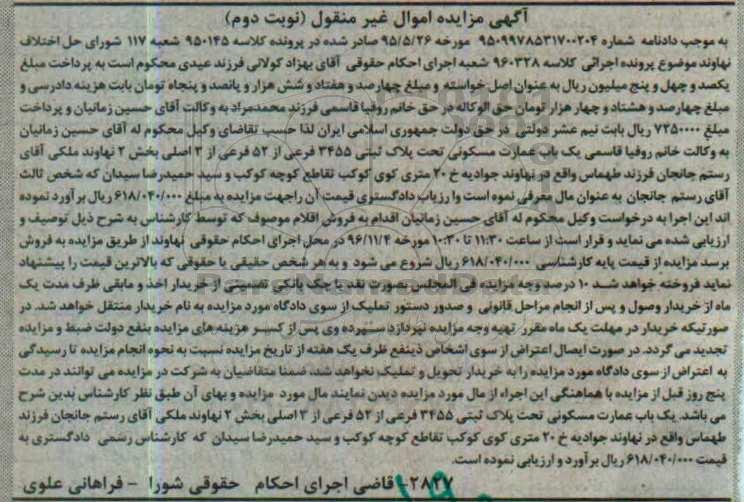 آگهی مزایده اموال غیر منقول (نوبت دوم)
به موجب دادنامه شماره ۹۵۰۹۹۷۸۵۳۱۷۰۰۲۰۴ مورخه ۹۵/۵/۲۶ صادر شده در پرونده کلاسه ۹۵۰۱۴۵ شعبه ۱۱۷ شورای حل اختلاف
نهاوند موضوع پرونده اجرائی کلاسه ۹۶۰۳۲۸ شعبه اجرای احکام حقوقی آقای بهزاد کولانی فرزند عیدی محکوم است به پرداخت مبلغ
یکصد و چهل و پنج میلیون ریال به عنوان اصل خواسته و مبلغ چهارصد و هفتاد و شش هزار و پانصد و پنجاه تومان بابت هزینه دادرسی و
مبلغ چهارصد و هشتاد و چهار هزار تومان حق الوکاله در حق خانم روفیا قاسمی فرزند محمدمراد به وکالت آقای حسین زمانیان و پرداخت
مبلغ ۷۲۵۰۰۰۰ ریال بابت نیم عشر دولتی در حق دولت جمهوری اسلامی ایران لذا حسب تقاضای وکیل محکوم له آقای حسین زمانیان
به وکالت خانم روفیا قاسمی یک باب عمارت مسکونی تحت پلاک ثبتی ۳۴۵۵ فرعی از ۵۲ فرعی از ۳ اصلی بخش ۲ نهاوند ملکی آقای
رستم جانجان فرزند طهماس واقع در نهاوند جوادیه خ ۲۰ متری کوی کوکب تقاطع کوچه کوکب و سید حمیدرضا سیدان که شخص ثالث
آقای رستم جانجان به عنوان مال معرفی نموه است وا رزیاب دادگستری قیمت آن راجهت مزایده به مبلغ ۶۱۸/۰۴۰/۰۰۰ ریال بر آورد نموده
اند این اجرا به درخواست وکیل محکوم له آقای حسین زمانیان اقدام به فروش اقلام موصوف که توسط کارشناس به شرح ذیل توصیف و
ارزیابی شده می نماید و قرار است از ساعت ۱۱:۳۰ تا ۱۰:۳۰ مورخه ۹۶/۱۱/۴ در محل اجرای احکام حقوقی نهاوند از طریق مزایده به فروش
برسد مزایده از قیمت پایه کارشناسی ۶۱۸/۰۴۰/۰۰۰ ریال شروع می شود و به هر شخص حقیقی یا حقوقی که بالاترین قیمت را پیشنهاد
نماید فروخته خواهد شد ۱۰ درصد وجه مزایده فی المجلس بصورت نقد یا چک بانکی تضمینی از خریدار اخذ و مابقی ظرف مدت یک
ماه از خریدار وصول و پس از انجام مراحل قانونی و صدور دستور تملیک از سوی دادگاه مورد مزایده به نام خریدار منتقل خواهد شد. در
صورتیکه خریدار در مهلت یک ماه مقرر تهیه وجه مزایده نپردازد سپرده وی پس از کسر هزینه های مزایده بنفع دولت ضبط و مزایده
تجدید می گردد. در صورت ایصال اعتراض از سوی اشخاص ذینفع ظرف یک هفته از تاریخ مزایده نسبت به نحوه انجام مزایده تا رسیدگی
به اعتراض از سوی دادگاه مورد مزایده را به خریدار تحویل و تملیک نخواهد شد. ضمنا متقاضیان به شرکت در مزایده می توانند در مدت
پنج روز قبل از مزایده با هماهنگی این اجراء از مال مورد مزایده دیدن نمایند مال مورد مزایده و بهای آن طبق نظر کارشناس بدین شرح
می باشد. یک باب عمارت مسکونی تحت پلاک ثبتی ۳۴۵۵ فرعی از ۵۲ فرعی از ۳ اصلی بخش ۲ نهاوند ملکی آقای رستم جانجان فرزند
طهماس واقع در نهاوند جوادیه خ ۲۰ متری کوی کوکب تقاطع کوچه کوکب و سید حمیدرضا سیدان که کارشناس رسمی دادگستری به
قیمت ۶۱۸/۰۴۰/۰۰۰ ریال بر آورد و ارزیابی نموده است.
۲۸۲۷- قاضی اجرای احکام حقوقی شورا - فراهانی علوی